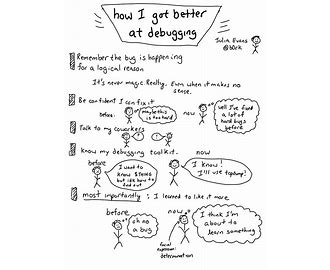 how I got better
at debugging
Julia Evans
@b0rk
Remember the bug is happening
for a logical reason
It's never magic. Really. Even when it makes no
sense.
Be confident I can fix it
before:
maybe this
is too hard
now
well I've fixed
a lot of
hard bugs
before
Talk to my coworkers
know my debugging toolkit.
before
I want to
know
but idk how to
find out
now
I know!
I'll use tcpdump!
most importantly: I learned to like it more
before
oh no
a bug
now
facial
expression:
determination
I think I'm
about to
learn something